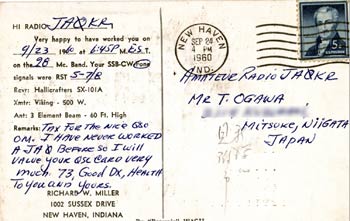 HI RADIO, JA0KR.
Very happy to have worked you on
9/23 1960 at 6:45P M.E.S.T.
on the 28 Mc. Band. Your SSB-CW-Fone
signals were RST 5-7/8
Recvr: Hallicrafters SX-101A
Xmtr: Viking - 500 W.
Ant: 3 Element Beam - 60 Ft. High
Remarks: TKY FOR THE NICE QSO
OM. I HAVE NEVER WORKED
A JA0 BEFORE SO I WILL
VALUE YOUR QSL CARD VERY
MUCH. 73, GOOD DX, HEALTH
TO YOU AND YOURS.
RICHARD W. MILLER
1002 SUSSEX DRIVE
NEW HAVEN, INDIANA
NEW HAVEN
SEP 24
4 PM
1960
IND.
5¢
AMATEUR RADIO JA0KR
MR T. OGAWA
MITSUKE, NIIGATA
JAPAN